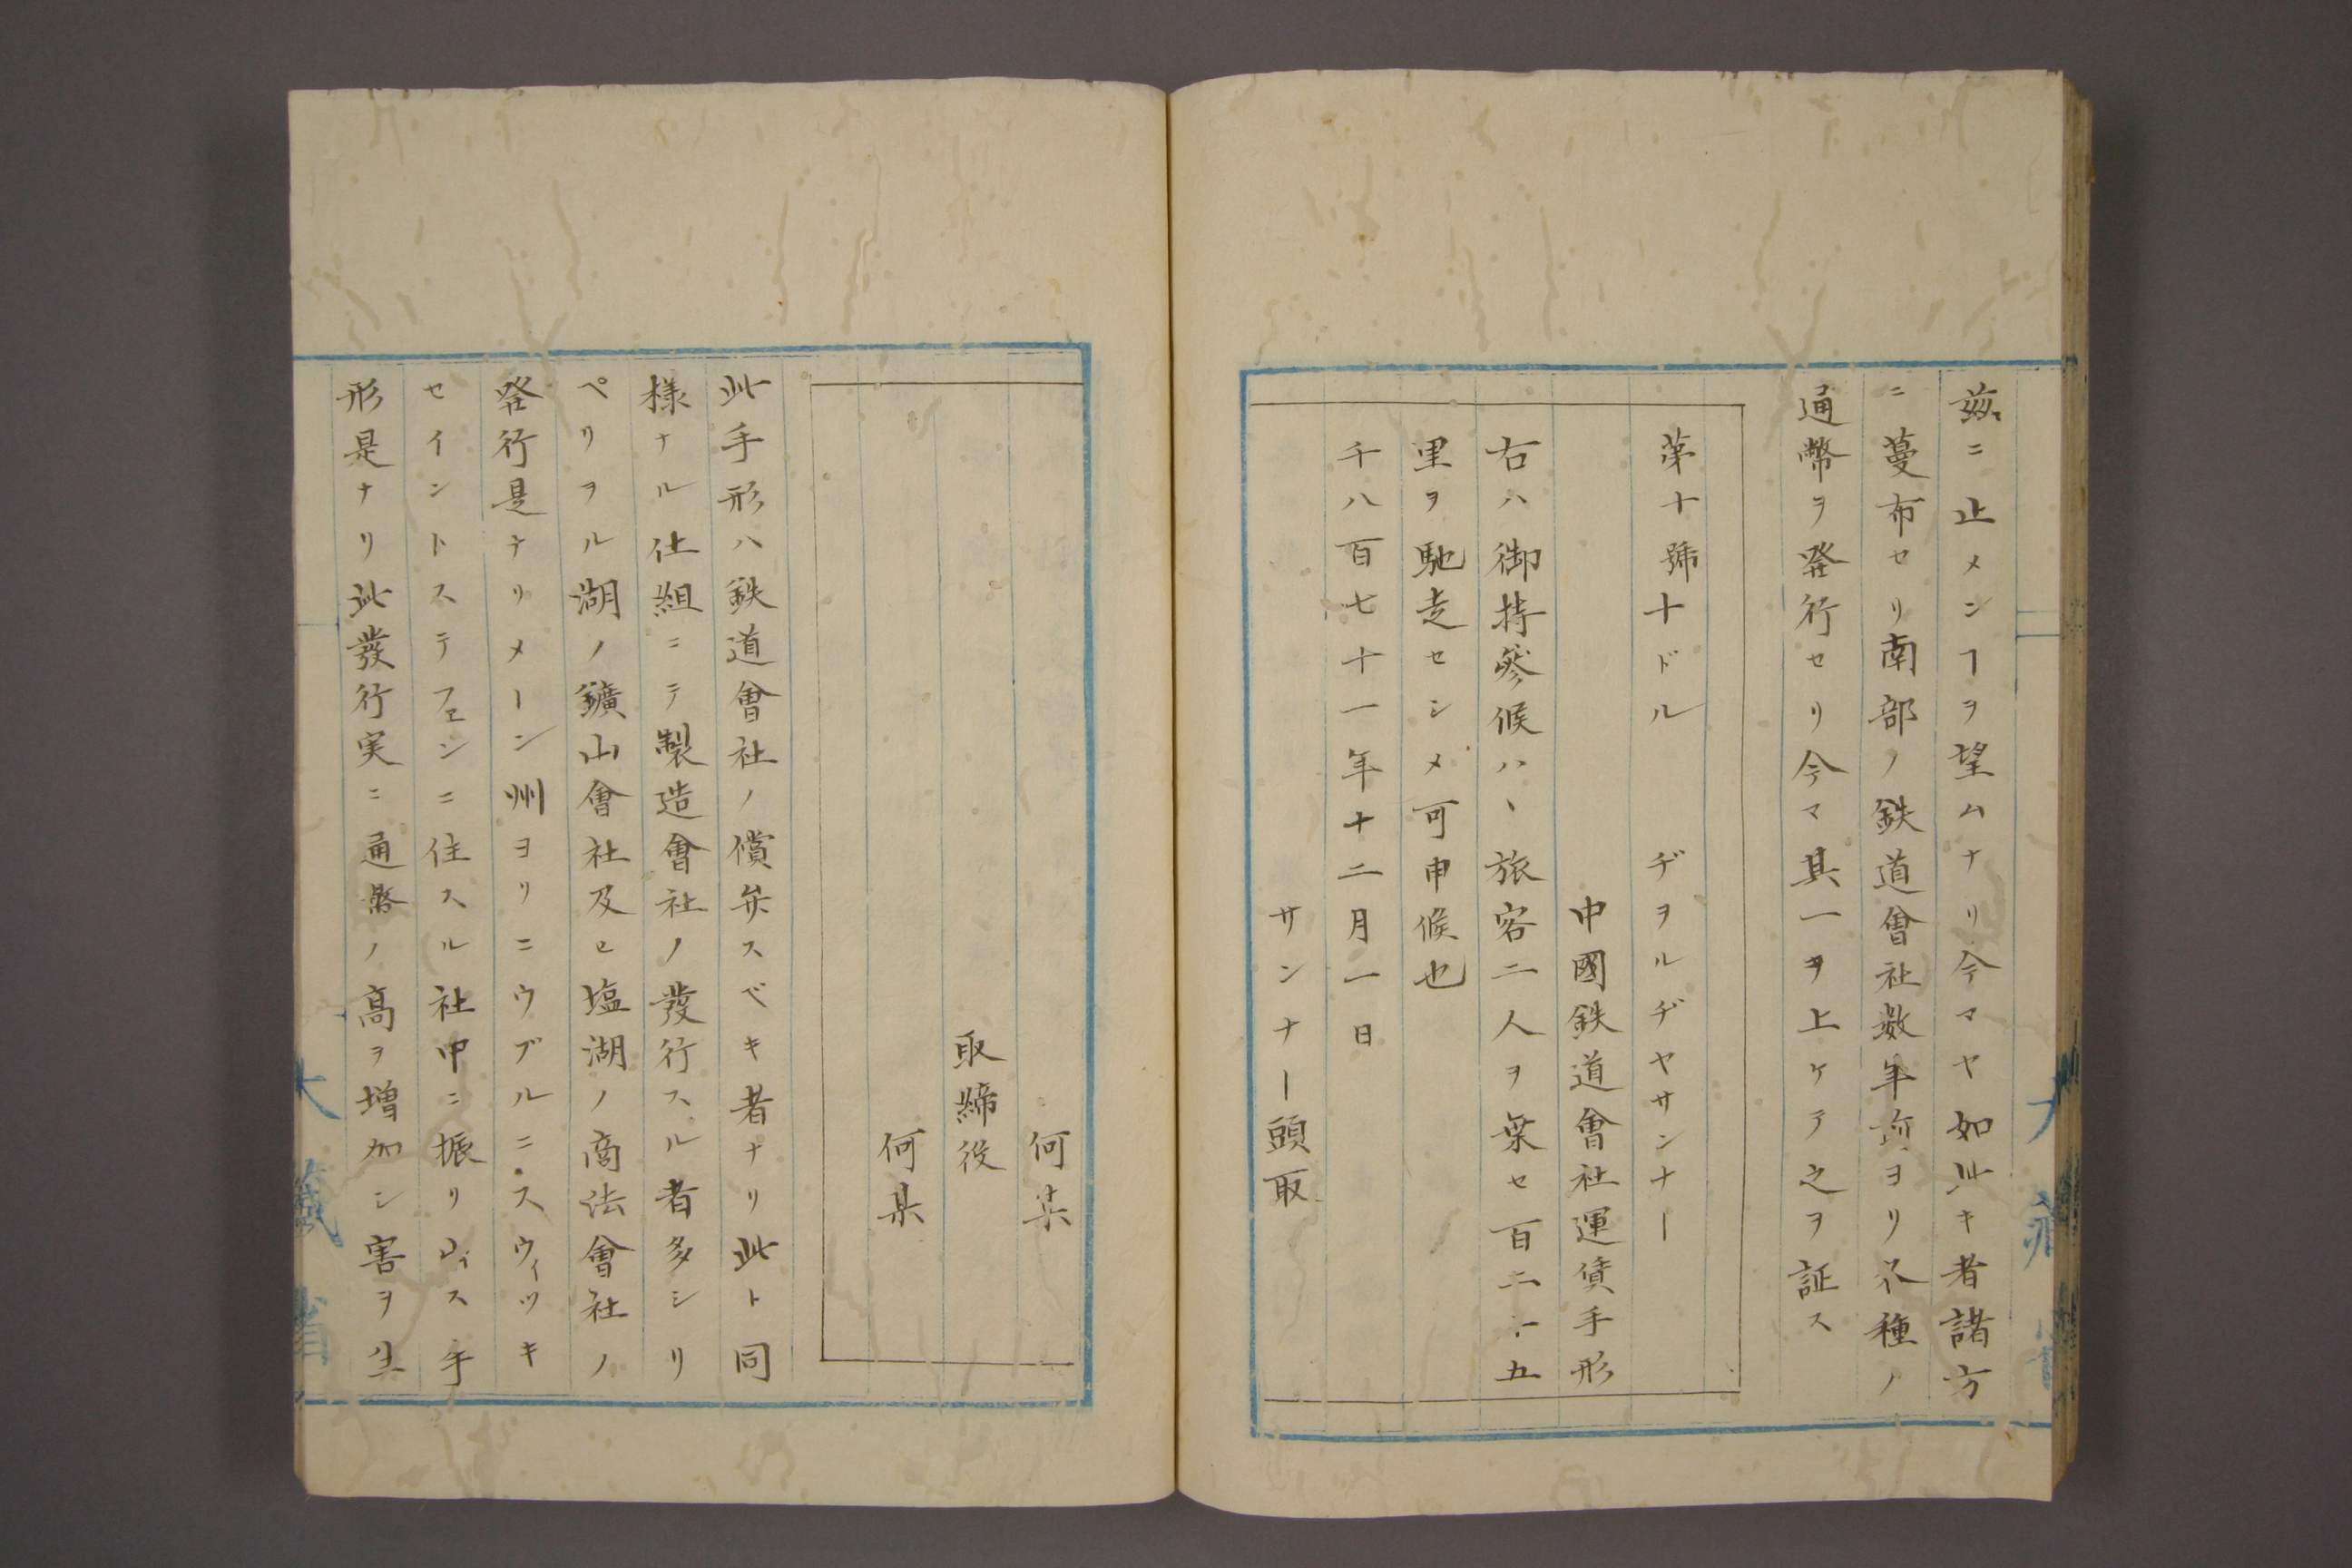 茲ニ止メンヿヲ望ムナリ今マヤ如此キ者諸方
ニ蔓布セリ南部ノ鉄道會社数年前ヨリ各種ノ
通幣ヲ発行セリ今マ其一ヲ上ケテ之ヲ証ス
第十號十ドル　ヂヲルヂヤサンナー
中國鉄道會社運賃手形
右ハ御持參候ハヽ旅客二人ヲ乗セ百二十五
里ヲ馳走セシメ可申候也
千八百七十一年十二月一日
サンナー頭取
何某
取締役
何某
此手形ハ鉄道會社ノ償弁スベキ者ナリ此ト同
様ナル仕組ニテ製造會社ノ發行スル者多シリ
ペリヲル湖ノ鑛山會社及ヒ塩湖ノ商法會社ノ
発行是ナリメーン州ヨリニウブルニスウィツキ
セイントステフェンニ住スル社中ニ振リ手
形是ナリ此發行実ニ通幣ノ高ヲ増加シ害ヲ生
大藏省